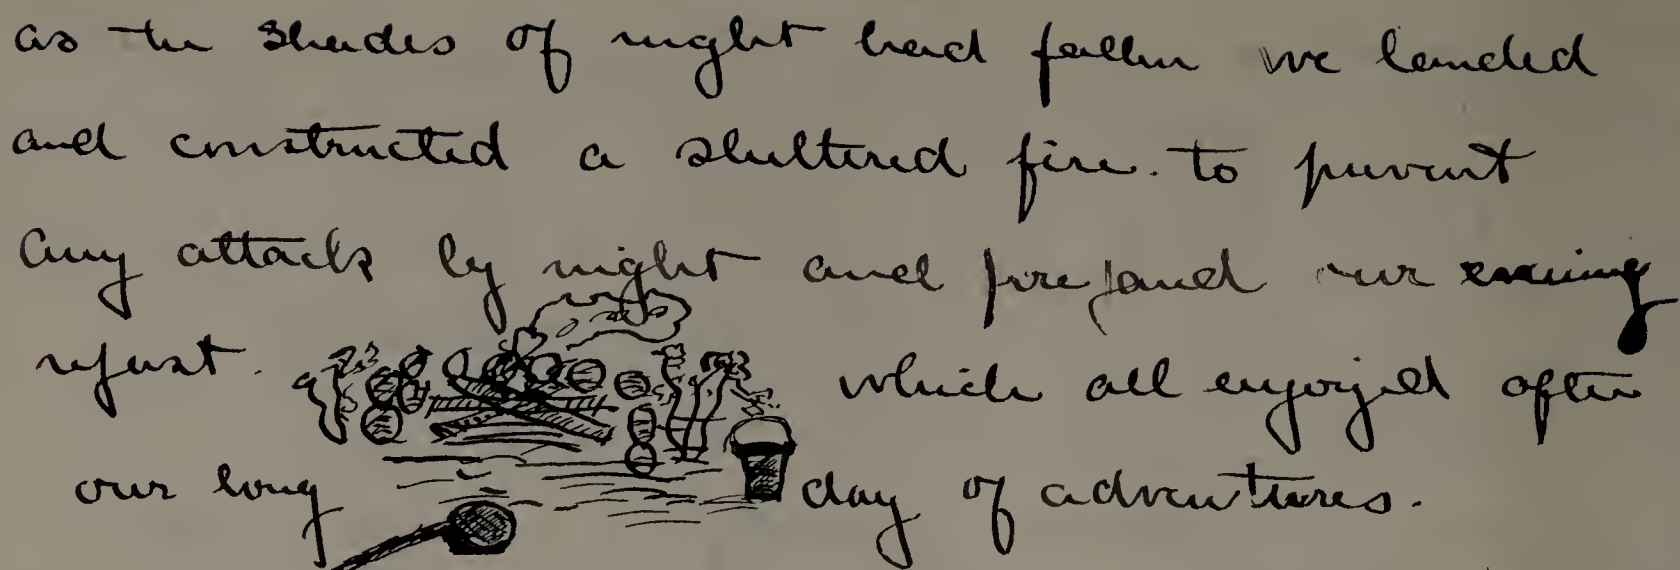 as the shades of night had fallen we landed
and constructed a sheltered fire. to prevent
any attack by night and prepared our evening
repast. which all enjoyed after
our long day of adventures.